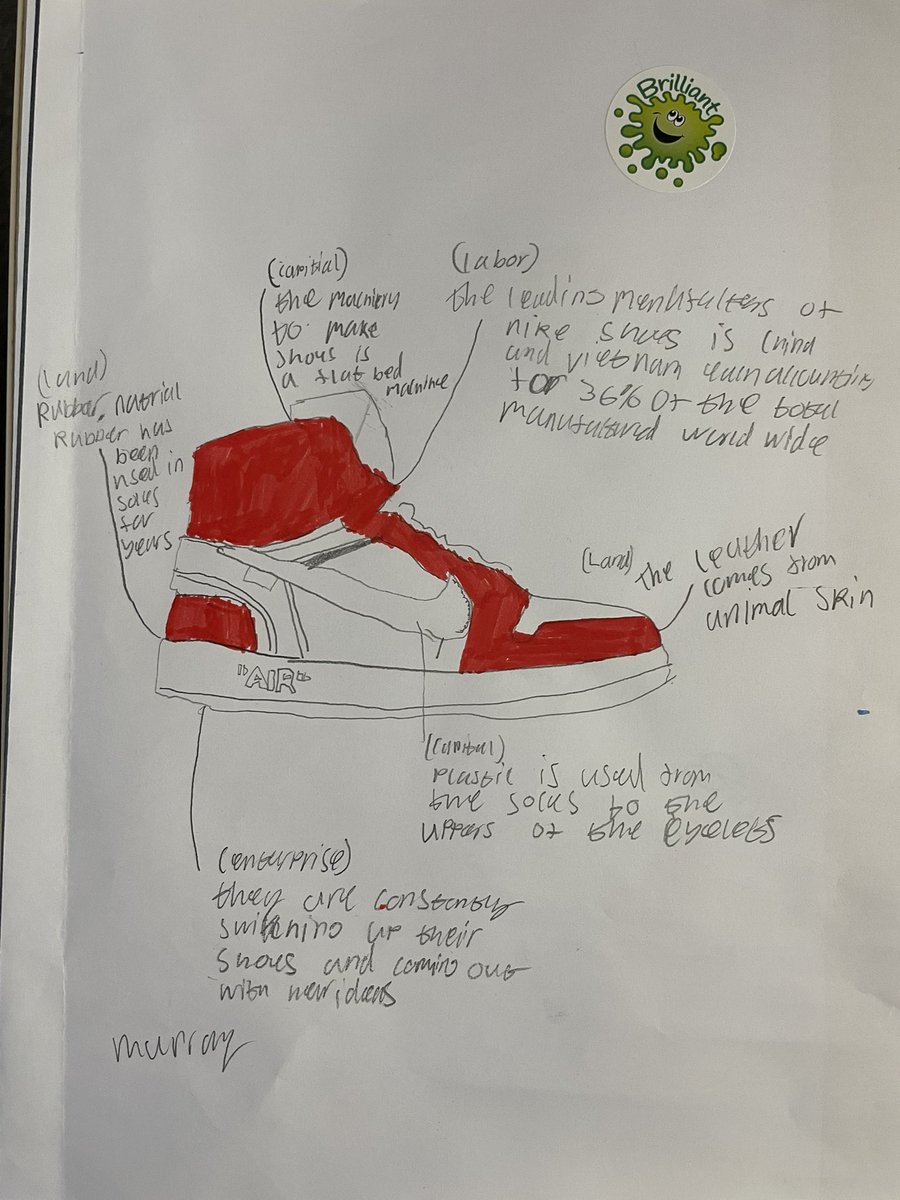 Brilliant
(capitial)
the machiery
to make
shoes is
a flat bed
machine
(labor)
the leading
of
nike shoes is China
and vietnam each accounting
for 36% of the total
manufactured world wide
(land)
Rubber, natrial
Rubber has
been
used in
soles
for
years
(Land) the leather
comes from
animal skin
"AIR"
(capital)
Plastic is used from
the soles to the
uppers of the eyelets
(enterprise)
they are constantly
up their
shoes and coming out
with new ideas
murray